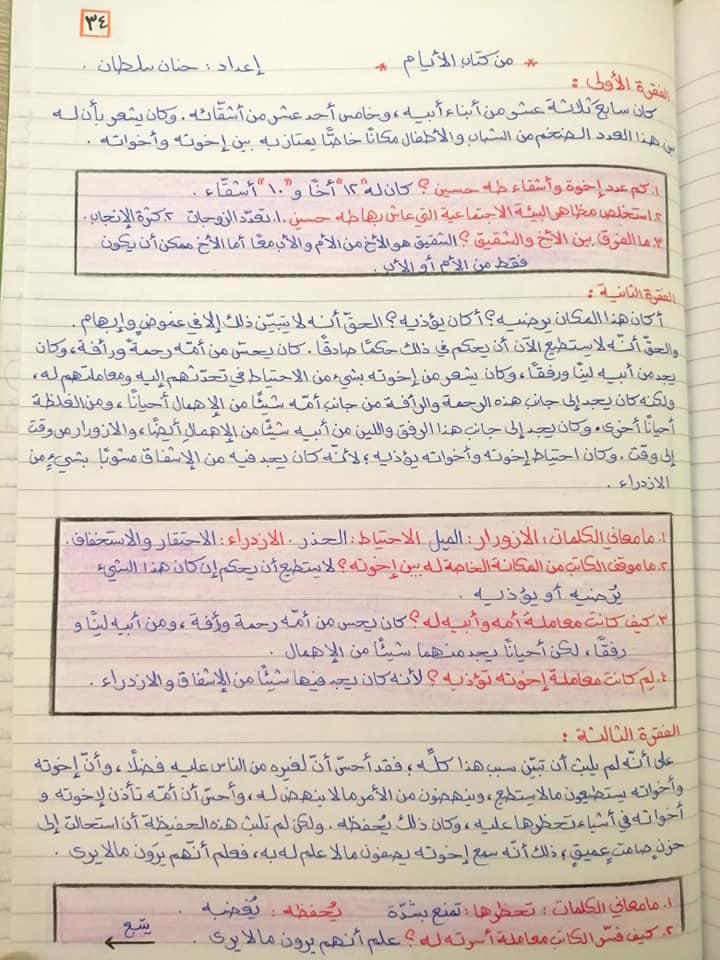 ٣٤
* من كتاب الأيام * إعداد : حنان سلطان .
الفقرة الأولى :
كان سابع ثلاثة عشر من أبناء أبيه ، وخامس أحد عشر من أشقّائه . وكان يشعر بأن له
بين هذا العدد الضخم من الشباب والأطفال مكانًا خاصًّا يمتاز به بين إخوته وأخواته .
١. كم عدد إخوة وأشقاء طه حسين ؟ كان له "١٢" أخًا و "١٠" أشقّاء .
٢. استخلص مظاهر البيئة الاجتماعية التي عاش بها طه حسين . ١. تعدّد الزوجات ٢. كثرة الإنجاب .
٣. ما الفرق بين الأخ والشقيق ؟ الشقيق هو الأخ من الأم والأب معًا أما الأخ ممكن أن يكون
فقط من الأم أو الأب .
الفقرة الثانية :
أكان هذا المكان يرضيه ؟ أكان يؤذيه ؟ الحقّ أنه لا يتبيّن ذلك إلا في غموض وإبهام .
والحق أنّه لا يستطيع الآن أن يحكم في ذلك حكمًا صادقًا . كان يحسّ من أمّه رحمةً ورأفة ، وكان
يجد من أبيه لينًا ورفقًا ، وكان يشعر من إخوته بشيء من الاحتياط في تحدّثهم إليه ومعاملتهم له ،
ولكنه كان يجد إلى جانب هذه الرحمة والرأفة من جانب أمّه شيئًا من الإهمال أحيانًا ، ومن الغلظة
أحيانًا أخرى . وكان يجد إلى جانب هذا الرفق واللين من أبيه شيئًا من الإهمال أيضًا ، والازورار من وقت
إلى وقت . وكان احتياط إخوته وأخواته يؤذيه ؛ لأنه كان يجد فيه من الإشفاق مشوبًا بشيءٍ من
الازدراء .
١. ما معاني الكلمات : الازورار : الميل الاحتياط : الحذر . الازدراء : الاحتقار والاستخفاف .
٢. ما موقف الكاتب من المكانة الخاصة له بين إخوته ؟ لا يستطيع أن يحكم إن كان هذا الشيء
يُرضيه أو يؤذيه .
٣. كيف كانت معاملة أمه وأبيه له ؟ كان يحس من أمّه رحمة ورأفة ، ومن أبيه لينًا و
رفقًا ، لكن أحيانًا يجد منهما شيئًا من الإهمال .
٤. لِمَ كانت معاملة إخوته تؤذيه ؟ لأنه كان يجد فيها شيئًا من الإشفاق والازدراء .
الفقرة الثالثة :
على أنّه لم يلبث أن تبيّن سبب هذا كلّه ؛ فقد أحسّ أنّ لغيره من الناس عليه فضلًا ، وأنّ إخوته
وأخواته يستطيعون ما لا يستطيع ، وينهضون من الأمر ما لا ينهض له ، وأحسّ أن أمّه تأذن لإخوته و
أخواته في أشياء تحظرها عليه ، وكان ذلك يُحفظه . ولكن لم تلبث هذه الحفيظة أن استحالت إلى
حزنٍ صامتٍ عميقٍ ؛ ذلك أنّه سمع إخوته يصفون ما لا علم له به ، فعلم أنّهم يرَون ما لا يرى .
١. ما معاني الكلمات : تحظرها : تمنع بشدّة يُحفظه : يُغضبه .
٢. كيف فسّر الكاتب معاملة أسرته له ؟ علم أنهم يرون ما لا يرى . يتبع